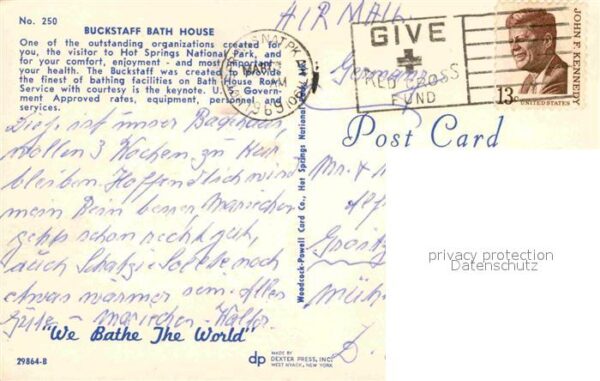 No. 250
BUCKSTAFF BATH HOUSE
One of the outstanding organizations created for
you, the visitor to Hot Springs National Park, and
for your comfort, enjoyment - and most important,
your health. The Buckstaff was created to provide
the finest of bathing facilities on Bath House Row.
Service with courtesy is the keynote. U. S. Govern-
ment Approved rates, equipment, personnel and
services.
AIR MAIL
Germany
NAT. PK.
MAR
1969
GIVE
RED CROSS
FUND
JOHN F. KENNEDY
13c
UNITED STATES
Post Card
Dies ist unser Badehaus,
wollen 3 Wochen zu Kur
bleiben. Hoffentlich wird
mein Bein besser. Mariechen
gehts schon recht gut,
auch Schatzi. Sollte noch
etwas wärmer sein. Alles
Gute - Mariechen - Walter
Mr. &
D.
privacy protection
Datenschutz
Woodcock-Powell Card Co., Hot Springs National
"We Bathe The World"
29864-B
dp
MADE BY
DEXTER PRESS, INC.
WEST NYACK, NEW YORK